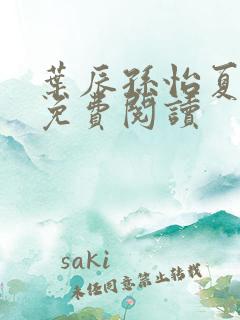 葉辰孫怡夏
免費閱讀
saki
未任同意禁止转载